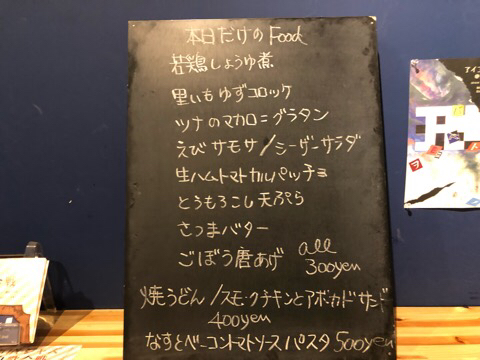 本日だけのFood
若鶏しょうゆ煮
里いもゆずコロッケ
ツナのマカロニグラタン
えびサモサ/シーザーサラダ
生ハムトマトカルパッチョ
とうもろこし天ぷら
さつまバター
ごぼう唐あげ all
300yen
焼うどん/スモークチキンとアボカドサンド
400yen
なすとベーコントマトソースパスタ 500yen
アイコ